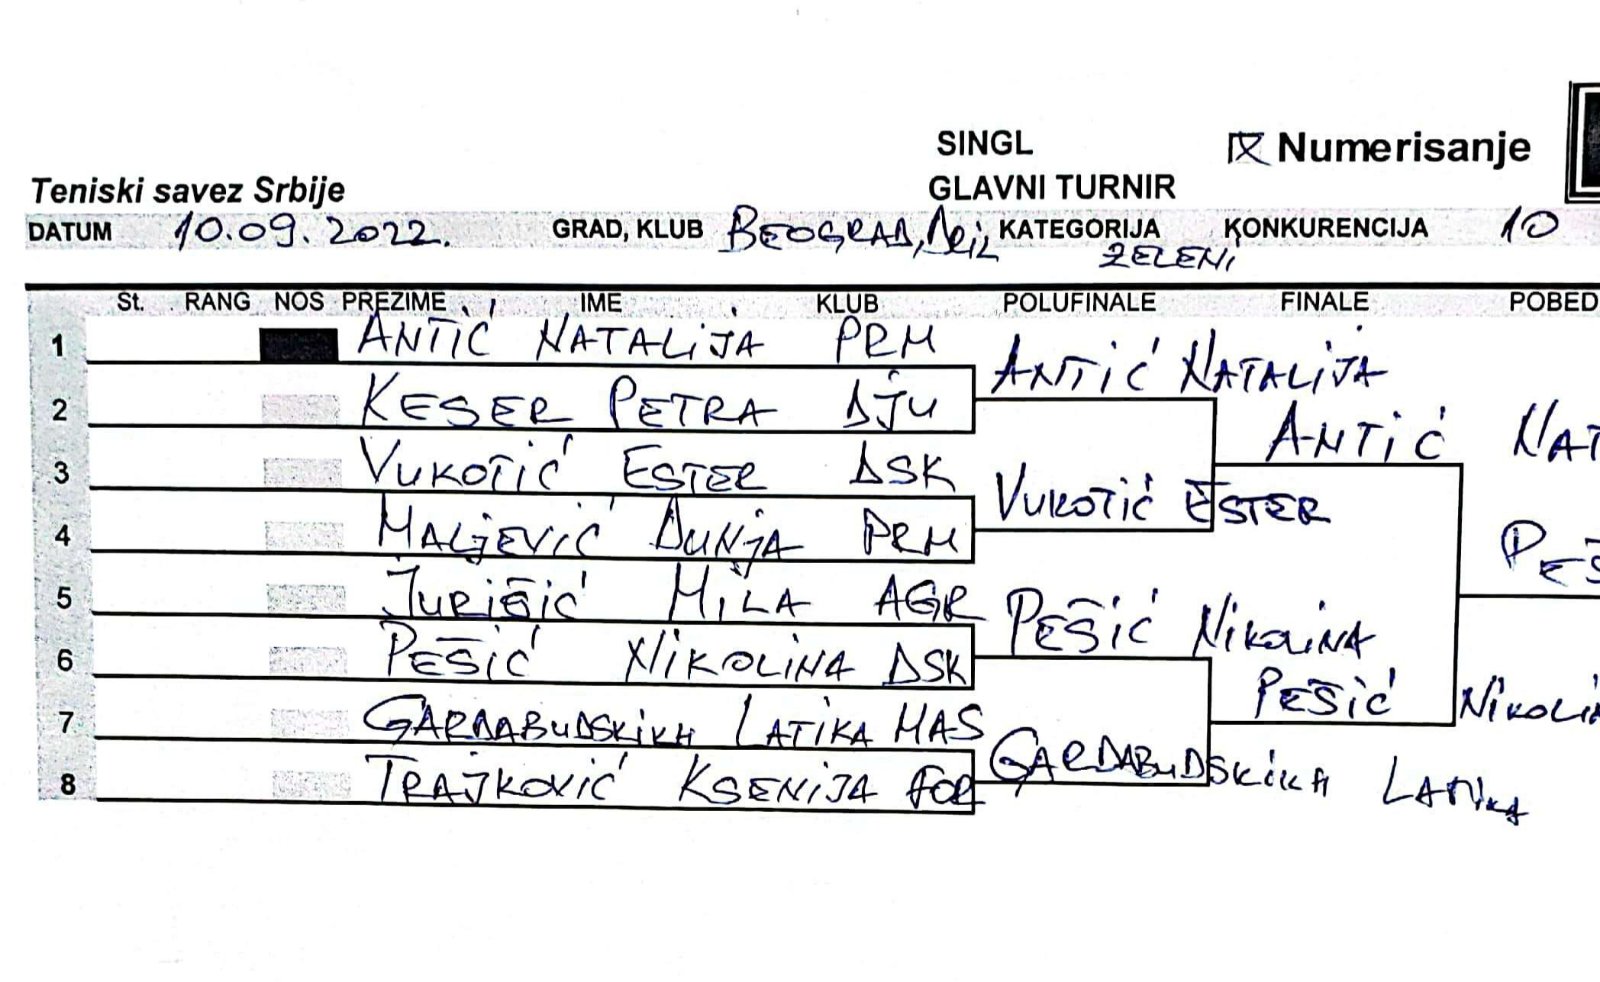 SINGL
Numerisanje
Teniski savez Srbije
GLAVNI TURNIR
DATUM 10.09.2022. GRAD, KLUB BEOGRAD, KATEGORIJA ZELENI KONKURENCIJA 10
St. RANG NOS PREZIME IME KLUB POLUFINALE FINALE POBED
1 ANTIĆ NATALIJA PRM
ANTIĆ NATALIJA
2 KESER PETRA DJU
ANTIĆ NAT
3 VUKOTIĆ ESTER DSK
VUKOTIĆ ESTER
4 MALJEVIĆ DUNJA PRM
PEŠ
5 JURIŠIĆ MILA AGR
PEŠIĆ NIKOLINA
6 PEŠIĆ NIKOLINA DSK
PEŠIĆ NIKOLIN
7 GARDABUDSKIKH LATIKA MAS
GARDABUDSKIKH LATIKA
8 TRAJKOVIĆ KSENIJA FOR